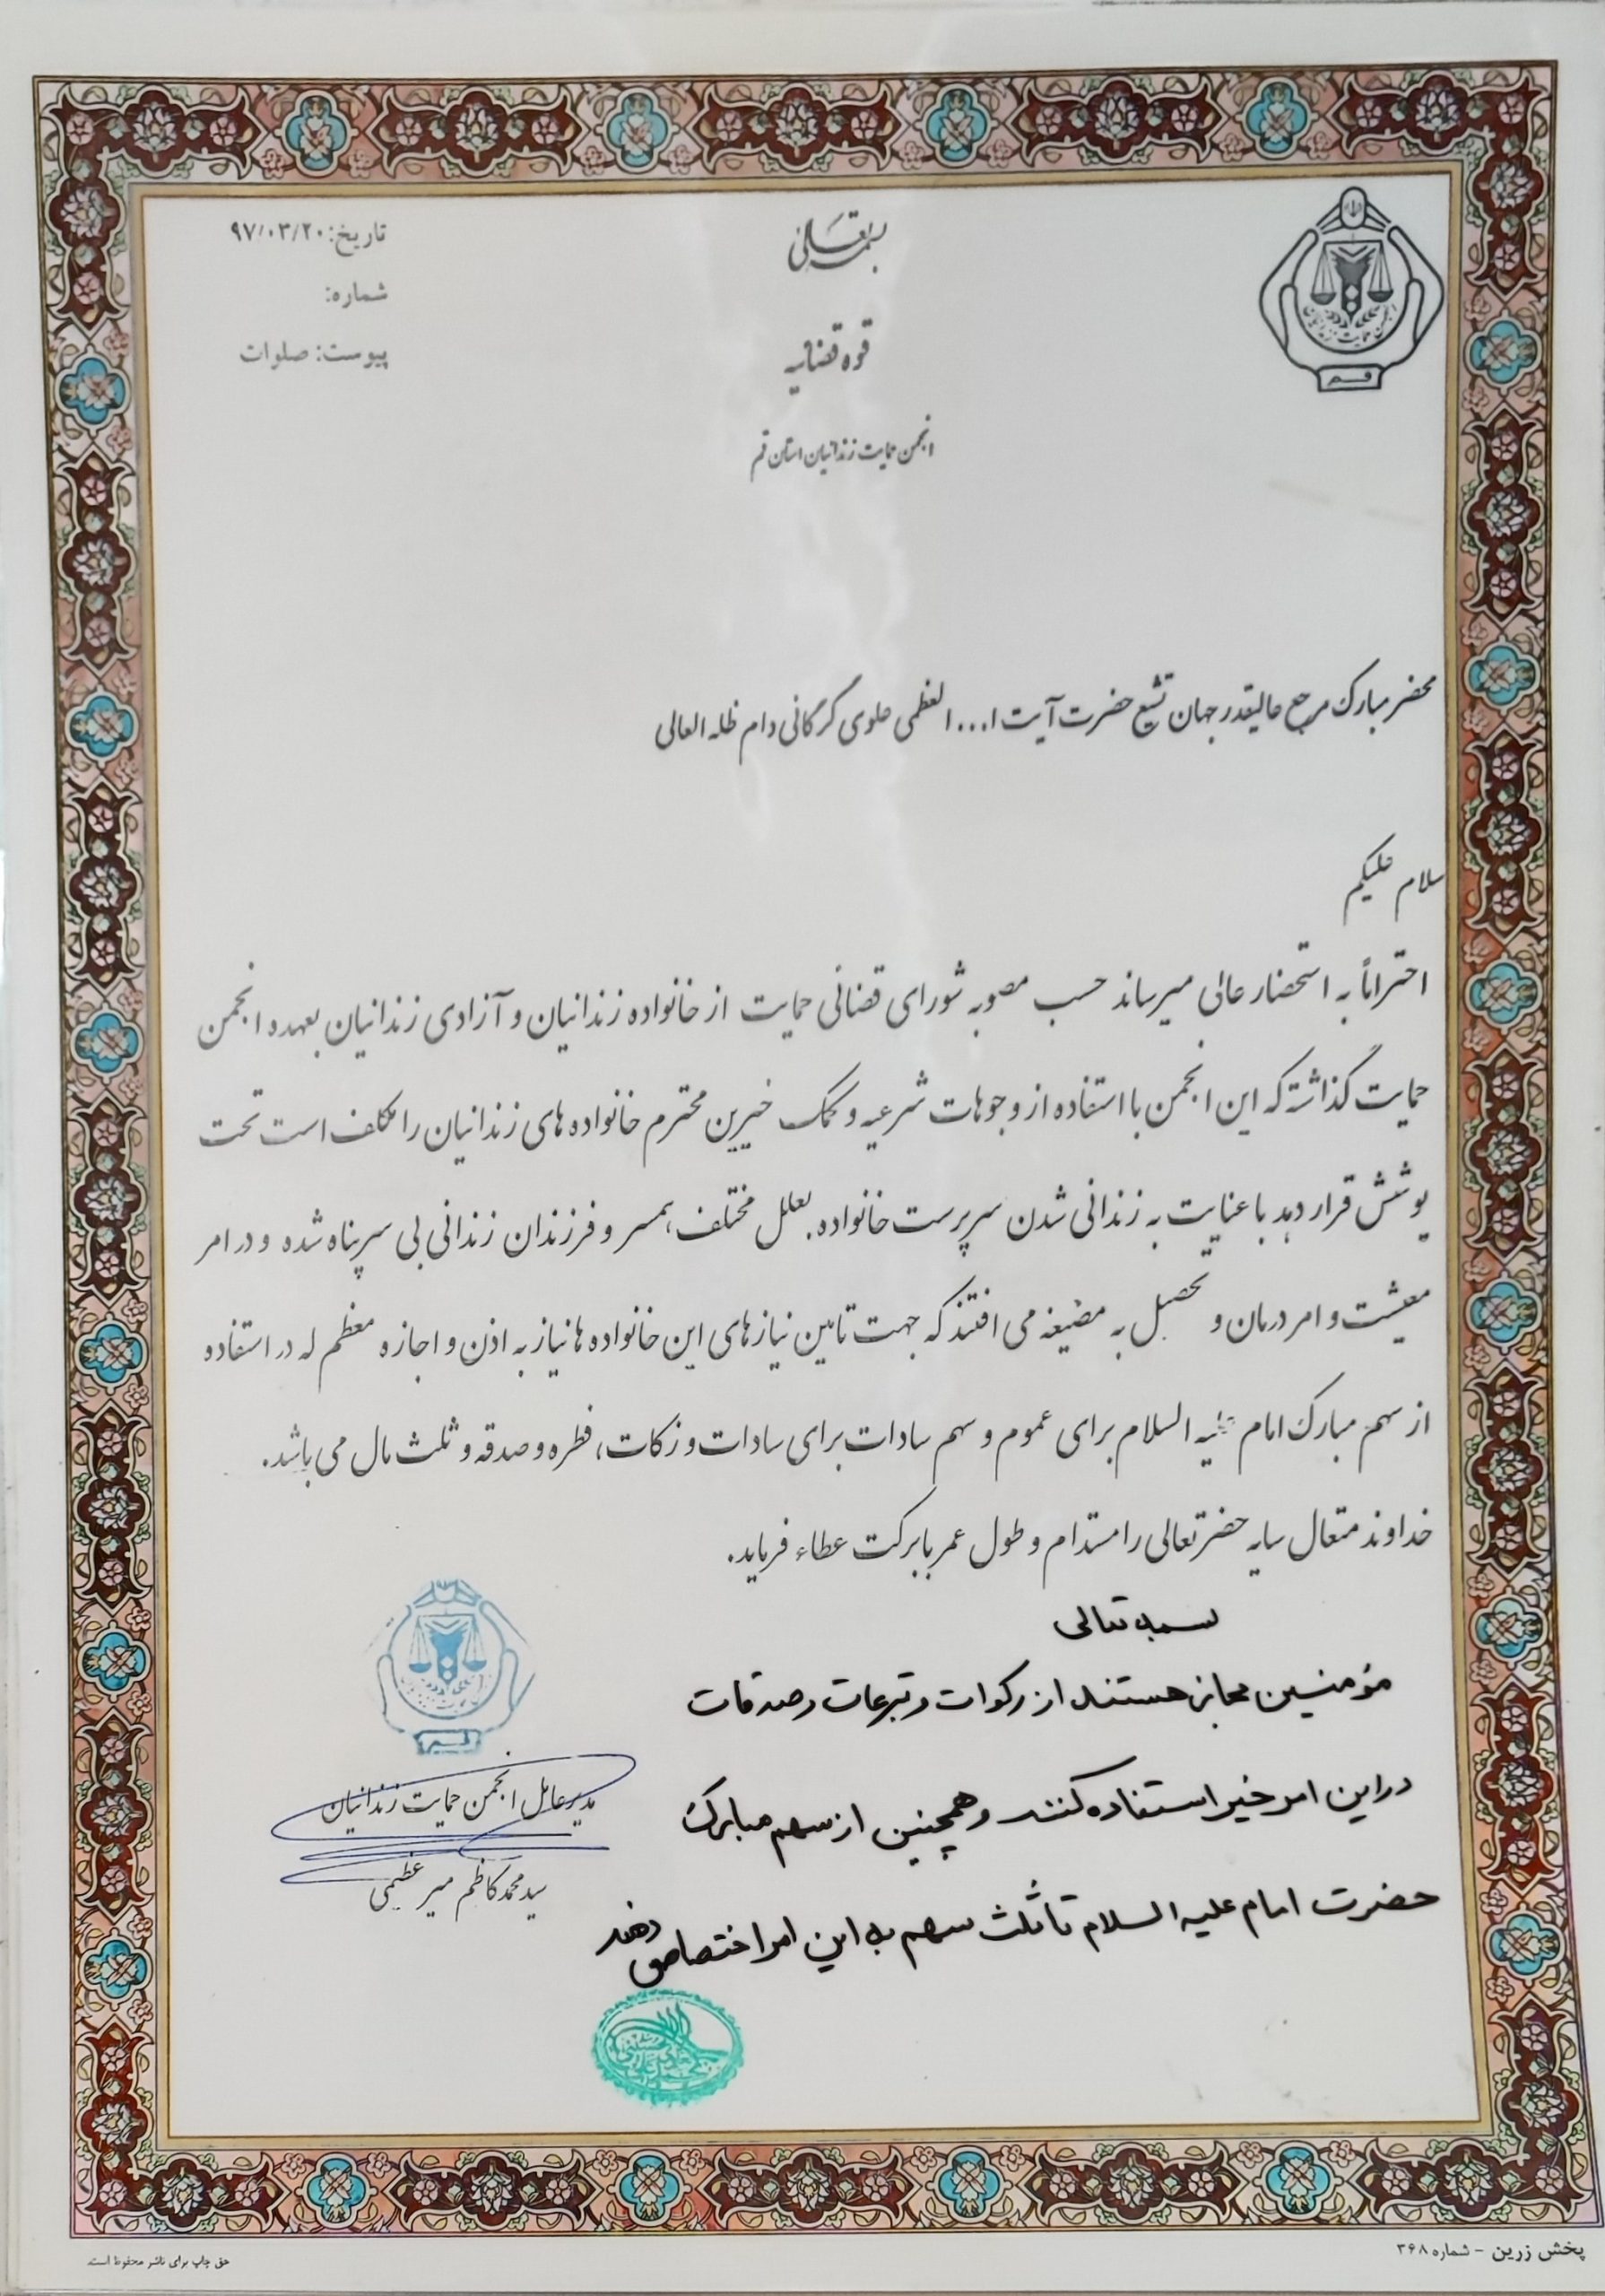 بسمه تعالی
تاریخ: ۹۷/۰۳/۲۰
شماره:
پیوست: صلوات
قوه قضائیه
انجمن حمایت زندانیان استان قم
انجمن حمایت زندانیان
قم
محضر مبارک مرجع عالیقدر جهان تشیع حضرت آیت ا... العظمی علوی گرگانی دام ظله العالی
سلام علیکم
احتراماً به استحضار عالی میرساند حسب مصوبه شورای قضائی حمایت از خانواده زندانیان و آزادی زندانیان بعهده انجمن
حمایت گذاشته که این انجمن با استفاده از وجوهات شرعیه و کمک خیرین محترم خانواده های زندانیان را مکلف است تحت
پوشش قرار دهد با عنایت به زندانی شدن سرپرست خانواده بعلل مختلف، همسر و فرزندان زندانی بی سرپناه شده و در امر
معیشت و امر درمان و تحصیل به مضیغه می افتند که جهت تامین نیازهای این خانواده ها نیاز به اذن و اجازه معظم له در استفاده
از سهم مبارک امام علیه السلام برای عموم و سهم سادات برای سادات و زکات، فطره و صدقه و ثلث مال می باشد.
خداوند متعال سایه حضرتعالی را مستدام و طول عمر با برکت عطاء فرماید.
بسمه تعالی
مؤمنین مجاز هستند از زکوات و تبرعات و صدقات
در این امر خیر استفاده کنند و همچنین از سهم مبارک
حضرت امام علیه السلام تا ثلث سهم به این امر اختصاص دهند
قم
مدیرعامل انجمن حمایت زندانیان
سید محمد کاظم میر عظیمی
پخش زرین - شماره ۳۶۸
حق چاپ برای ناشر محفوظ است